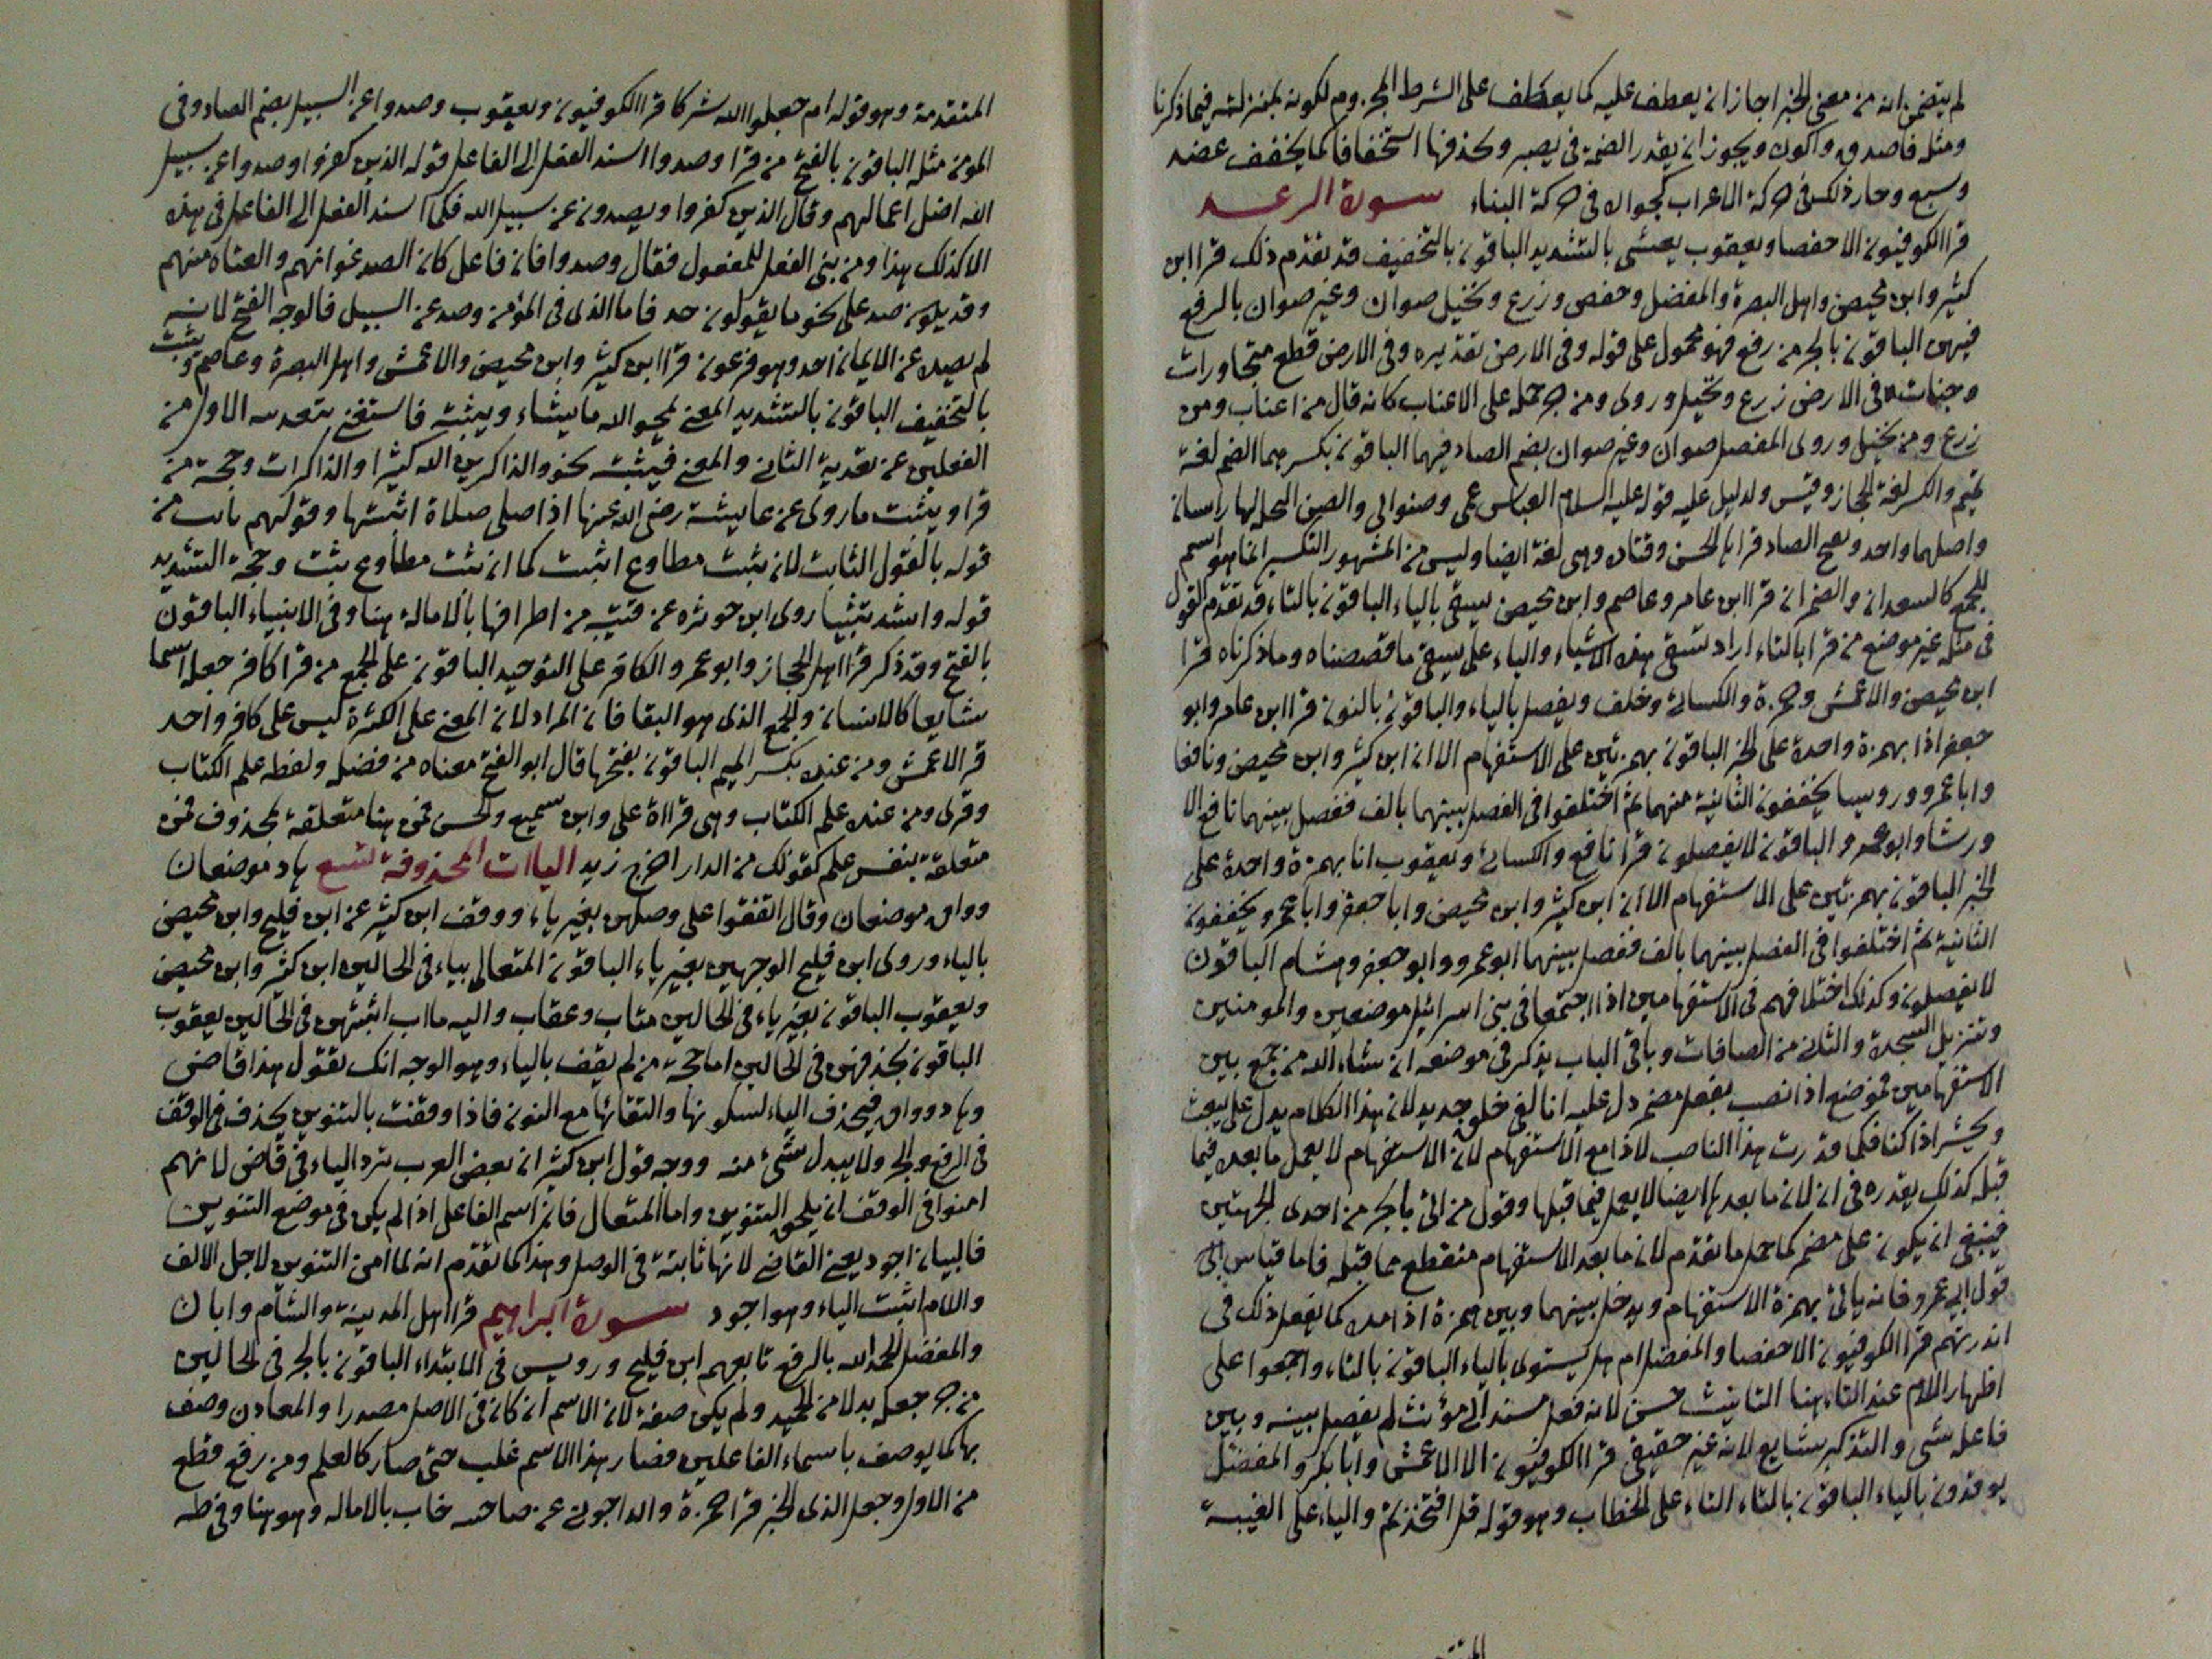 لم يتضمن انه من معنى الخبر اجاز ان يعطف عليه كما يعطف على الشرط المجزوم لكونه بمنزلته فيما ذكرنا
ومثله فاصدق واكون ويجوز ان يقدر الضمة في يصبر وحذفها استخفافا كما يخفف عضد
وسبع وجاز ذلك في حركة الاعراب كجوازه في حركة البناء سورة الرعد
قرا الكوفيون الا حفصا ويعقوب يغشى بالتشديد الباقون بالتخفيف قد تقدم ذلك قرا ابن
كثير وابن محيصن واهل البصرة والمفضل وحفص وزرع ونخيل صنوان وغير صنوان بالرفع
فيهن الباقون بالجر من رفع فهو محمول على قوله وفي الارض تقديره وفي الارض قطع متجاورات
وجنات وفي الارض زرع ونخيل وروى ومن جر حمله على الاعناب كانه قال من اعناب ومن
زرع ومن نخيل وروى المفضل صنوان وغير صنوان بضم الصاد فيهما الباقون بكسرهما الضم لغة
تميم والكسر لغة الحجاز وقيس ولدليل عليه قوله عليه السلام العباس عمى وصنو ابي والصنو النخلة لها راسان
واصلهما واحد وبفتح الصاد قرا بالحسن وقتادة وهى لغة ايضا وليس من المشهور التكسير انما هو اسم
للجمع كالسعدان والضمران قرا ابن عامر وعاصم وابن محيصن يسقى بالياء الباقون بالتاء قد تقدم القول
في مثله غير موضع من قرا بالتاء اراد تسقى هذه الاشياء والياء على يسقى ما قصصناه وما ذكرناه قرا
ابن محيصن والاعمش وحمزة والكسائي وخلف ويفضل بالياء والباقون بالنون قرا ابن عامر وابو
جعفر اذا بهمزة واحدة على الخبر الباقون بهمزتين على الاستفهام الا ان ابن كثير وابن محيصن ونافعا
وابا عمرو ورويسا يخففون الثانية منهما ثم اختلفوا في الفصل بينهما بالف ففصل بينهما نافع الا
ورشا وابو عمرو والباقون لا يفصلون قرا نافع والكسائي ويعقوب انا بهمزة واحدة على
الخبر الباقون بهمزتين على الاستفهام الا ان ابن كثير وابن محيصن وابا جعفر وابا عمرو يخففون
الثانية ثم اختلفوا في الفصل بينهما بالف ففصل بينهما ابو عمرو وابو جعفر وهشام الباقون
لا يفصلون وكذلك اختلافهم في الاستفهامين اذا اجتمعا في بني اسرائيل موضعين والمومنين
وتنزيل السجدة والثاني من الصافات وباقي الباب يذكر في موضعه ان شاء الله من جمع بين
الاستفهامين فموضع اذا نصب بفعل مضمر دل عليه انا لفي خلق جديد لان هذا الكلام يدل على يبعث
ويحشر اذا كنا فكما قدرت هذا الناصب لاذا مع الاستفهام لان الاستفهام لا يعمل ما بعده فيما
قبله كذلك يقدره في ان لان ما بعدها ايضا لا يعمل فيما قبلها وقول من اتى بالجر من احدى الجهتين
فينبغي ان يكون على مضمر كما حمل ما تقدم لان ما بعد الاستفهام منقطع مما قبله فاما قياس ابى
قول ابي عمرو فانه ياتي بهمزة الاستفهام ويدخل بينهما وبين همزة اذا مدة كما يفعل ذلك في
انذرتهم قرا الكوفيون الا حفصا والمفضل ام هل يستوى بالياء الباقون بالتاء واجمعوا على
اظهار اللام عند التاء هنا التانيث حسن لانه فعل مسند الى مؤنث لم يفصل بينه وبين
فاعله شى والتذكير شايع لانه غير حقيقي قرا الكوفيون الا الاعمش وابا بكر والمفضل
يوقدون بالياء الباقون بالتاء التاء على الخطاب وهو قوله قل افتخذتم والياء على الغيبة
المتقدمة وهو قوله ام جعلوا الله شركا قرا الكوفيون ويعقوب وصدوا عن السبيل بضم الصاد وفى
المومن مثله الباقون بالفتح من قرا وصدوا اسند الفعل الى الفاعل قوله الذين كفروا وصدوا عن سبيل
الله اضل اعمالهم وقال الذين كفروا ويصدون عن سبيل الله فكما اسند الفعل الى الفاعل في هذه
الا كذلك هذا ومن بنى الفعل للمفعول فقال وصدوا فان فاعل كان الصد غواتهم والعتاة منهم
وقد يكون صد على نحو ما يقولون حد فاما الذى فى المؤمن وصد عن السبيل فالوجه الفتح لانه
لم يصده عن الايمان احد وهو فرعون قرا ابن كثير وابن محيصن والاعمش واهل البصرة وعاصم ويثبت
بالتخفيف الباقون بالتشديد المعنى يمحو الله ما يشاء ويثبته فاستغنى بتعديه الاول من
الفعلين عن تعدية الثاني والمعنى فيثبته نحو والذاكرين الله كثيرا والذاكرات وحجة من
قرا ويثبت ما روى عن عايشة رضى الله عنها اذا صلى صلاة اثبتها وقولهم ثابت من
قوله بالقول الثابت لان ثبت مطاوع اثبت كما ان تثبت مطاوع ثبت وحجة التشديد
قوله واشد تثبيتا روى ابن حوثره عن قتيبه من اطرافها بالامالة هنا وفي الانبياء الباقون
بالفتح وقد ذكر قرا اهل الحجاز وابو عمرو الكافر على التوحيد الباقون على الجمع من قرا كافر جعله اسما
شايعا كالانسان والجمع الذى هو البقا فان المراد لان المعنى على الكثرة ليس على كافر واحد
قرا الاعمش ومن عنده بكسر الميم الباقون بفتحها قال ابو الفتح معناه من فضله ولفظه علم الكتاب
وقرى ومن عنده علم الكتاب وهى قراءة على وابن سميع والحسن فمن هنا متعلقة بمحذوف فمن
متعلقة بنفس علم كقولك من الدار اخرج زيد الياات المحذوفة تسع هاد موضعان
وواق موضعان وقال اتفقوا على وصلهن بغير ياء ووقف ابن كثير عن ابن فليح وابن محيصن
بالياء وروى ابن فليح الوجهين بغير ياء الباقون المتعالى بياء في الحالين ابن كثير وابن محيصن
ويعقوب الباقون بغير ياء في الحالين متاب وعقاب واليه ماب اثبتهن في الحالين يعقوب
الباقون بحذفهن في الحالين اما حجة من لم يقف بالياء وهو الوجه انك تقول هذا قاض
وهاد وواق فيحذف الياء لسكونها والتقائها مع النون فاذا وقفت بالتنوين يحذف في الوقف
فى الرفع والجر ولا يبدل شيء منه ووجه قول ابن كثير ان بعض العرب ترد الياء في قاض لانهم
امنوا في الوقف ان يلحق التنوين واما المتعال فان اسم الفاعل اذا لم يكن في موضع التنوين
فالبيان اجود يعنى القاضى لانها ثابتة في الوصل وهذا كما تقدم انه لما امن التنوين لاجل الالف
واللام اثبت الياء وهو اجود سورة ابراهيم قرا اهل المدينة والشام وابان
والمفضل الحمد الله بالرفع تابعهم ابن فليح ورويس في الابتداء الباقون بالجر في الحالين
من جر جعله بدلا من الحميد ولم يكن صفة لان الاسم ان كان في الاصل مصدرا والمصادر وصف
بها كما يوصف باسماء الفاعلين فصار هذا الاسم غلب حتى صار كالعلم ومن رفع قطع
من الاول وجعل الذى الخبر قرا حمزة والداجوني عن صاحبه خاب بالاماله وهو هنا وفي طه